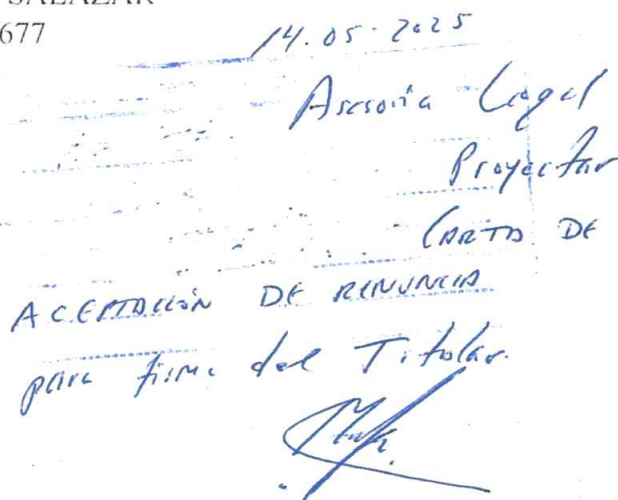 SALAZAR
677
14.05.2025
Asesoría Legal
Proyectar
CARTA DE
ACEPTACIÓN DE RENUNCIA
para firma del Titular.